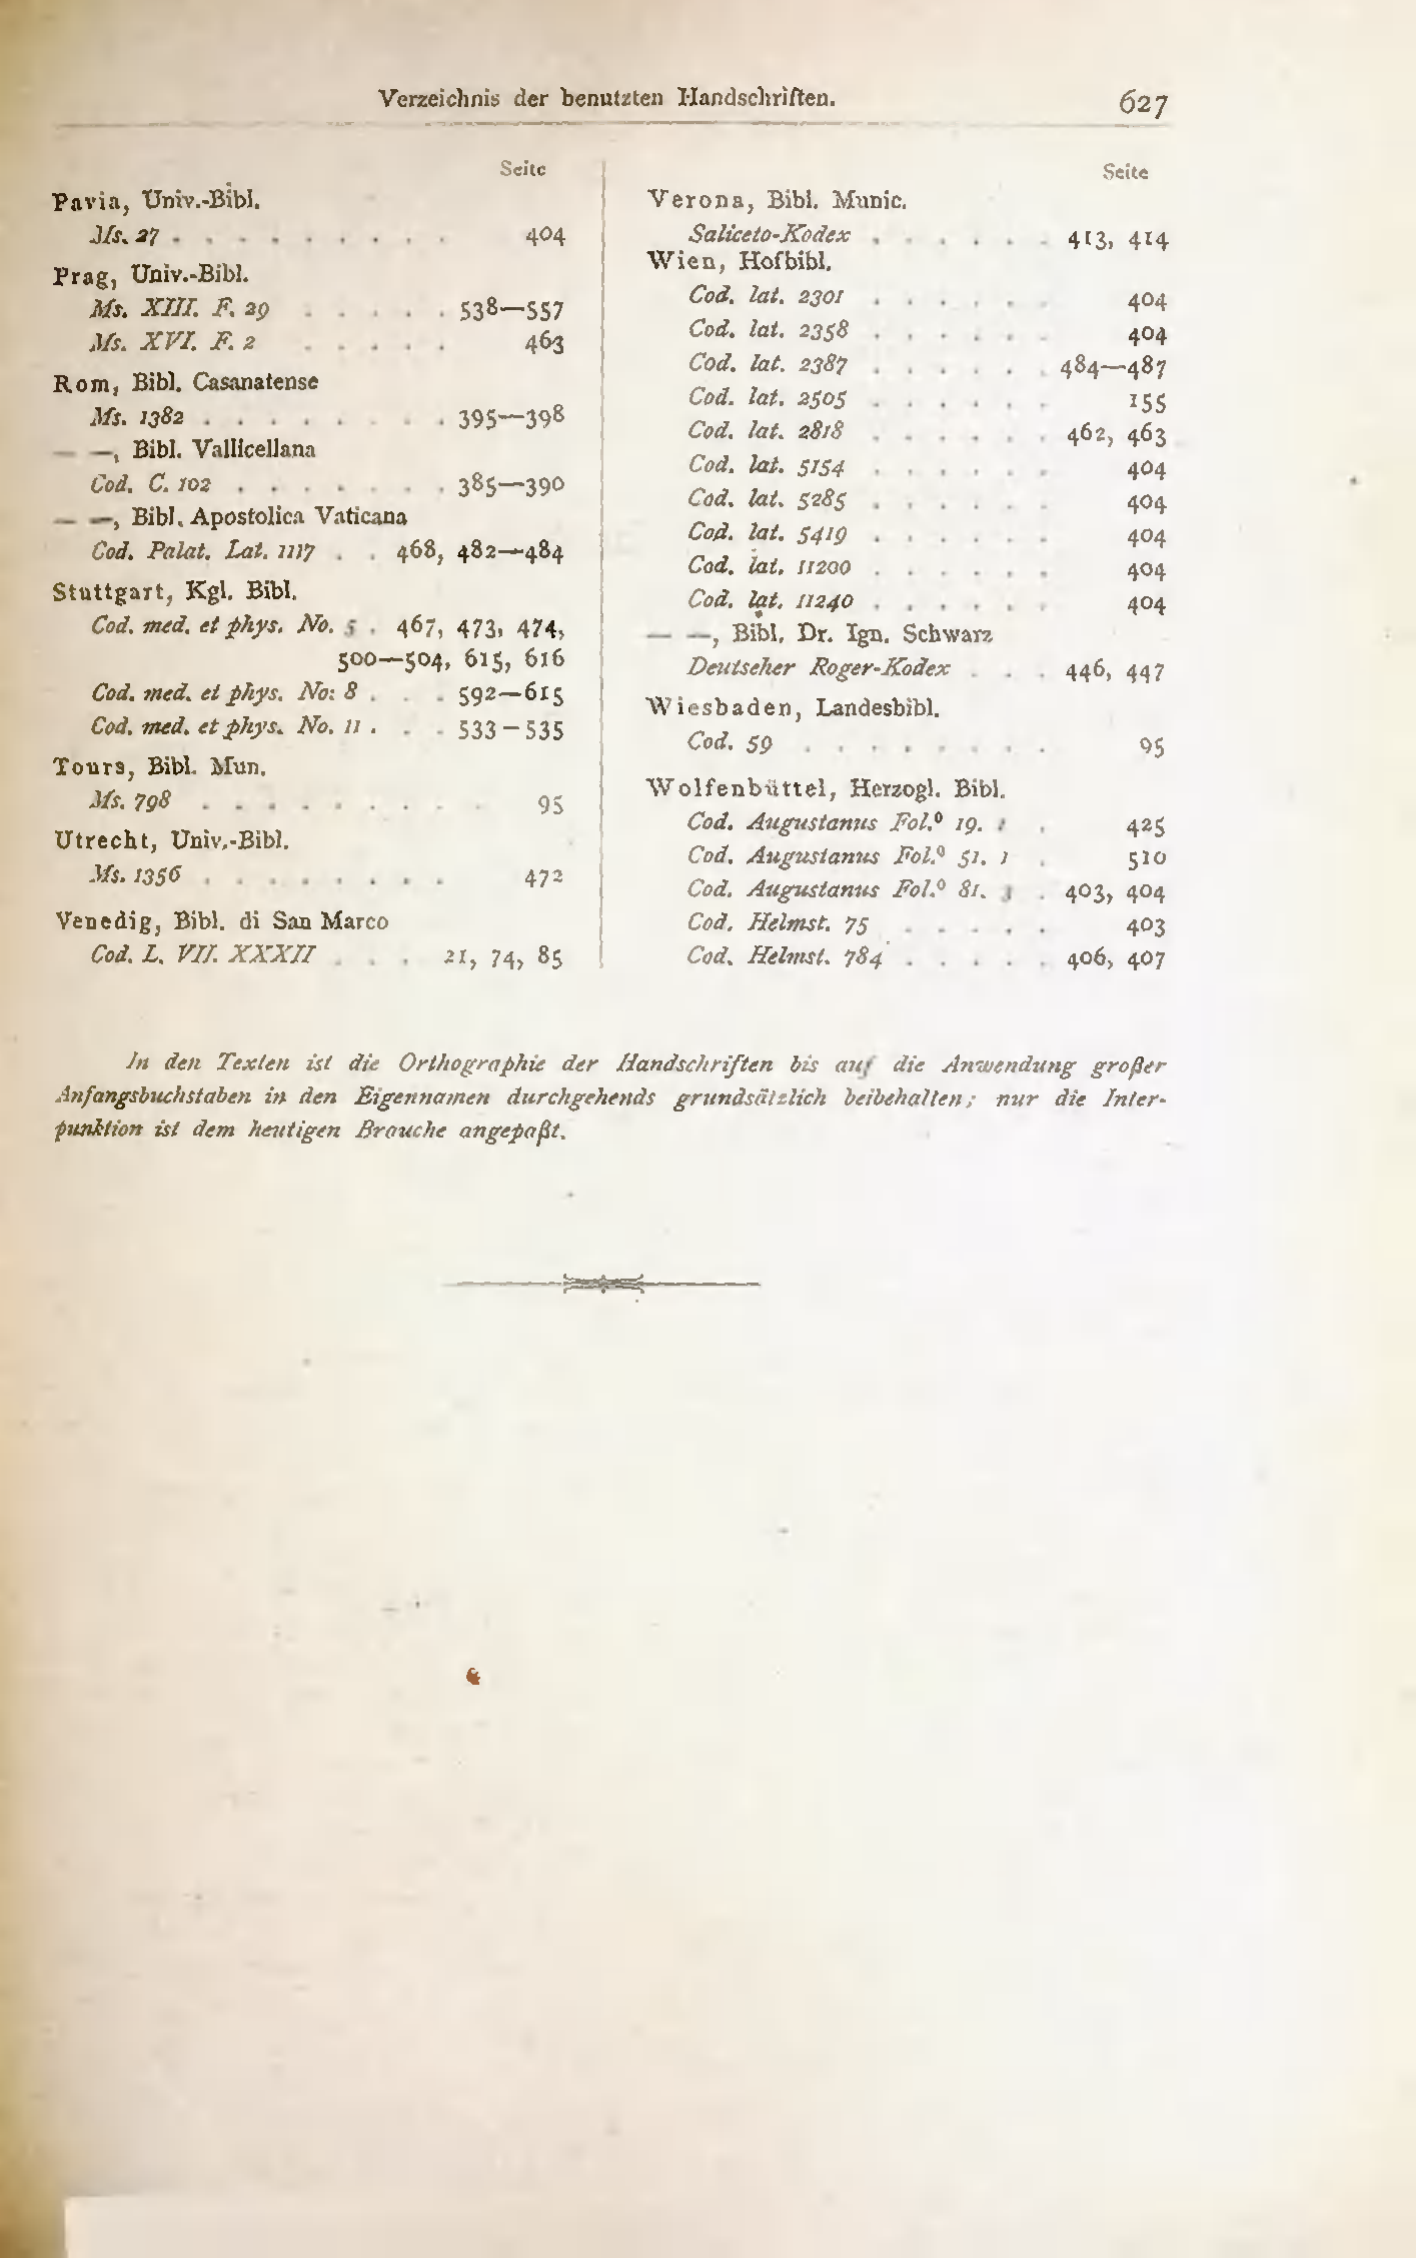 Verzeichnis der benutzten Handschriften. 627
Seite
Pavia, Univ.-Bibl.
Ms. 27 . . . . . . . . . 404
Prag, Univ.-Bibl.
Ms. XIII. F. 29 . . . . . 538—557
Ms. XVI. F. 2 . . . . . 463
Rom, Bibl. Casanatense
Ms. 1382 . . . . . . . . 395—398
— —, Bibl. Vallicellana
Cod. C. 102 . . . . . . . 385—390
— —, Bibl. Apostolica Vaticana
Cod. Palat. Lat. 1117 . . 468, 482—484
Stuttgart, Kgl. Bibl.
Cod. med. et phys. No. 5 . 467, 473, 474,
500—504, 615, 616
Cod. med. et phys. No. 8 . . . 592—615
Cod. med. et phys. No. 11 . . . 533—535
Tours, Bibl. Mun.
Ms. 798 . . . . . . . . . 95
Utrecht, Univ.-Bibl.
Ms. 1356 . . . . . . . . 472
Venedig, Bibl. di San Marco
Cod. L. VII. XXXII . . . 21, 74, 85
Seite
Verona, Bibl. Munic.
Saliceto-Kodex . . . . . . 413, 414
Wien, Hofbibl.
Cod. lat. 2301 . . . . . . 404
Cod. lat. 2358 . . . . . . 404
Cod. lat. 2387 . . . . . . 484—487
Cod. lat. 2505 . . . . . . 155
Cod. lat. 2818 . . . . . . 462, 463
Cod. lat. 5154 . . . . . . 404
Cod. lat. 5285 . . . . . . 404
Cod. lat. 5419 . . . . . . 404
Cod. lat. 11200 . . . . . . 404
Cod. lat. 11240 . . . . . . 404
— —, Bibl. Dr. Ign. Schwarz
Deutscher Roger-Kodex . . . 446, 447
Wiesbaden, Landesbibl.
Cod. 59 . . . . . . . . 95
Wolfenbüttel, Herzogl. Bibl.
Cod. Augustanus Fol.⁰ 19. . 425
Cod. Augustanus Fol.⁰ 51. 1 . 510
Cod. Augustanus Fol.⁰ 81. . 403, 404
Cod. Helmst. 75 . . . . . 403
Cod. Helmst. 784 . . . . . 406, 407
In den Texten ist die Orthographie der Handschriften bis auf die Anwendung großer
Anfangsbuchstaben in den Eigennamen durchgehends grundsätzlich beibehalten; nur die Inter-
punktion ist dem heutigen Brauche angepaßt.